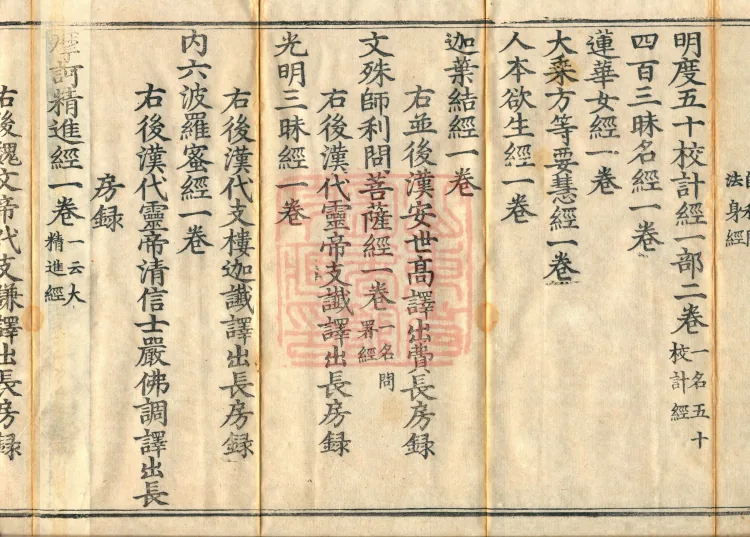 法身經
明度五十校計經一部二卷一名五十
校計經
四百三昧名經一卷
蓮華女經一卷
大乗方等要慧經一卷
人本欲生經一卷
迦葉結經一卷
右並後漢安世高譯出費長房録
文殊師利問菩薩經一卷一名問
署經
右後漢代靈帝支讖譯出長房録
光明三昧經一卷
右後漢代支樓迦讖譯出長房録
内六波羅蜜經一卷
右後漢代靈帝清信士嚴佛調譯出長
房録
摩訶精進經一卷一云大
精進經
右後魏文帝代支謙譯出長房録